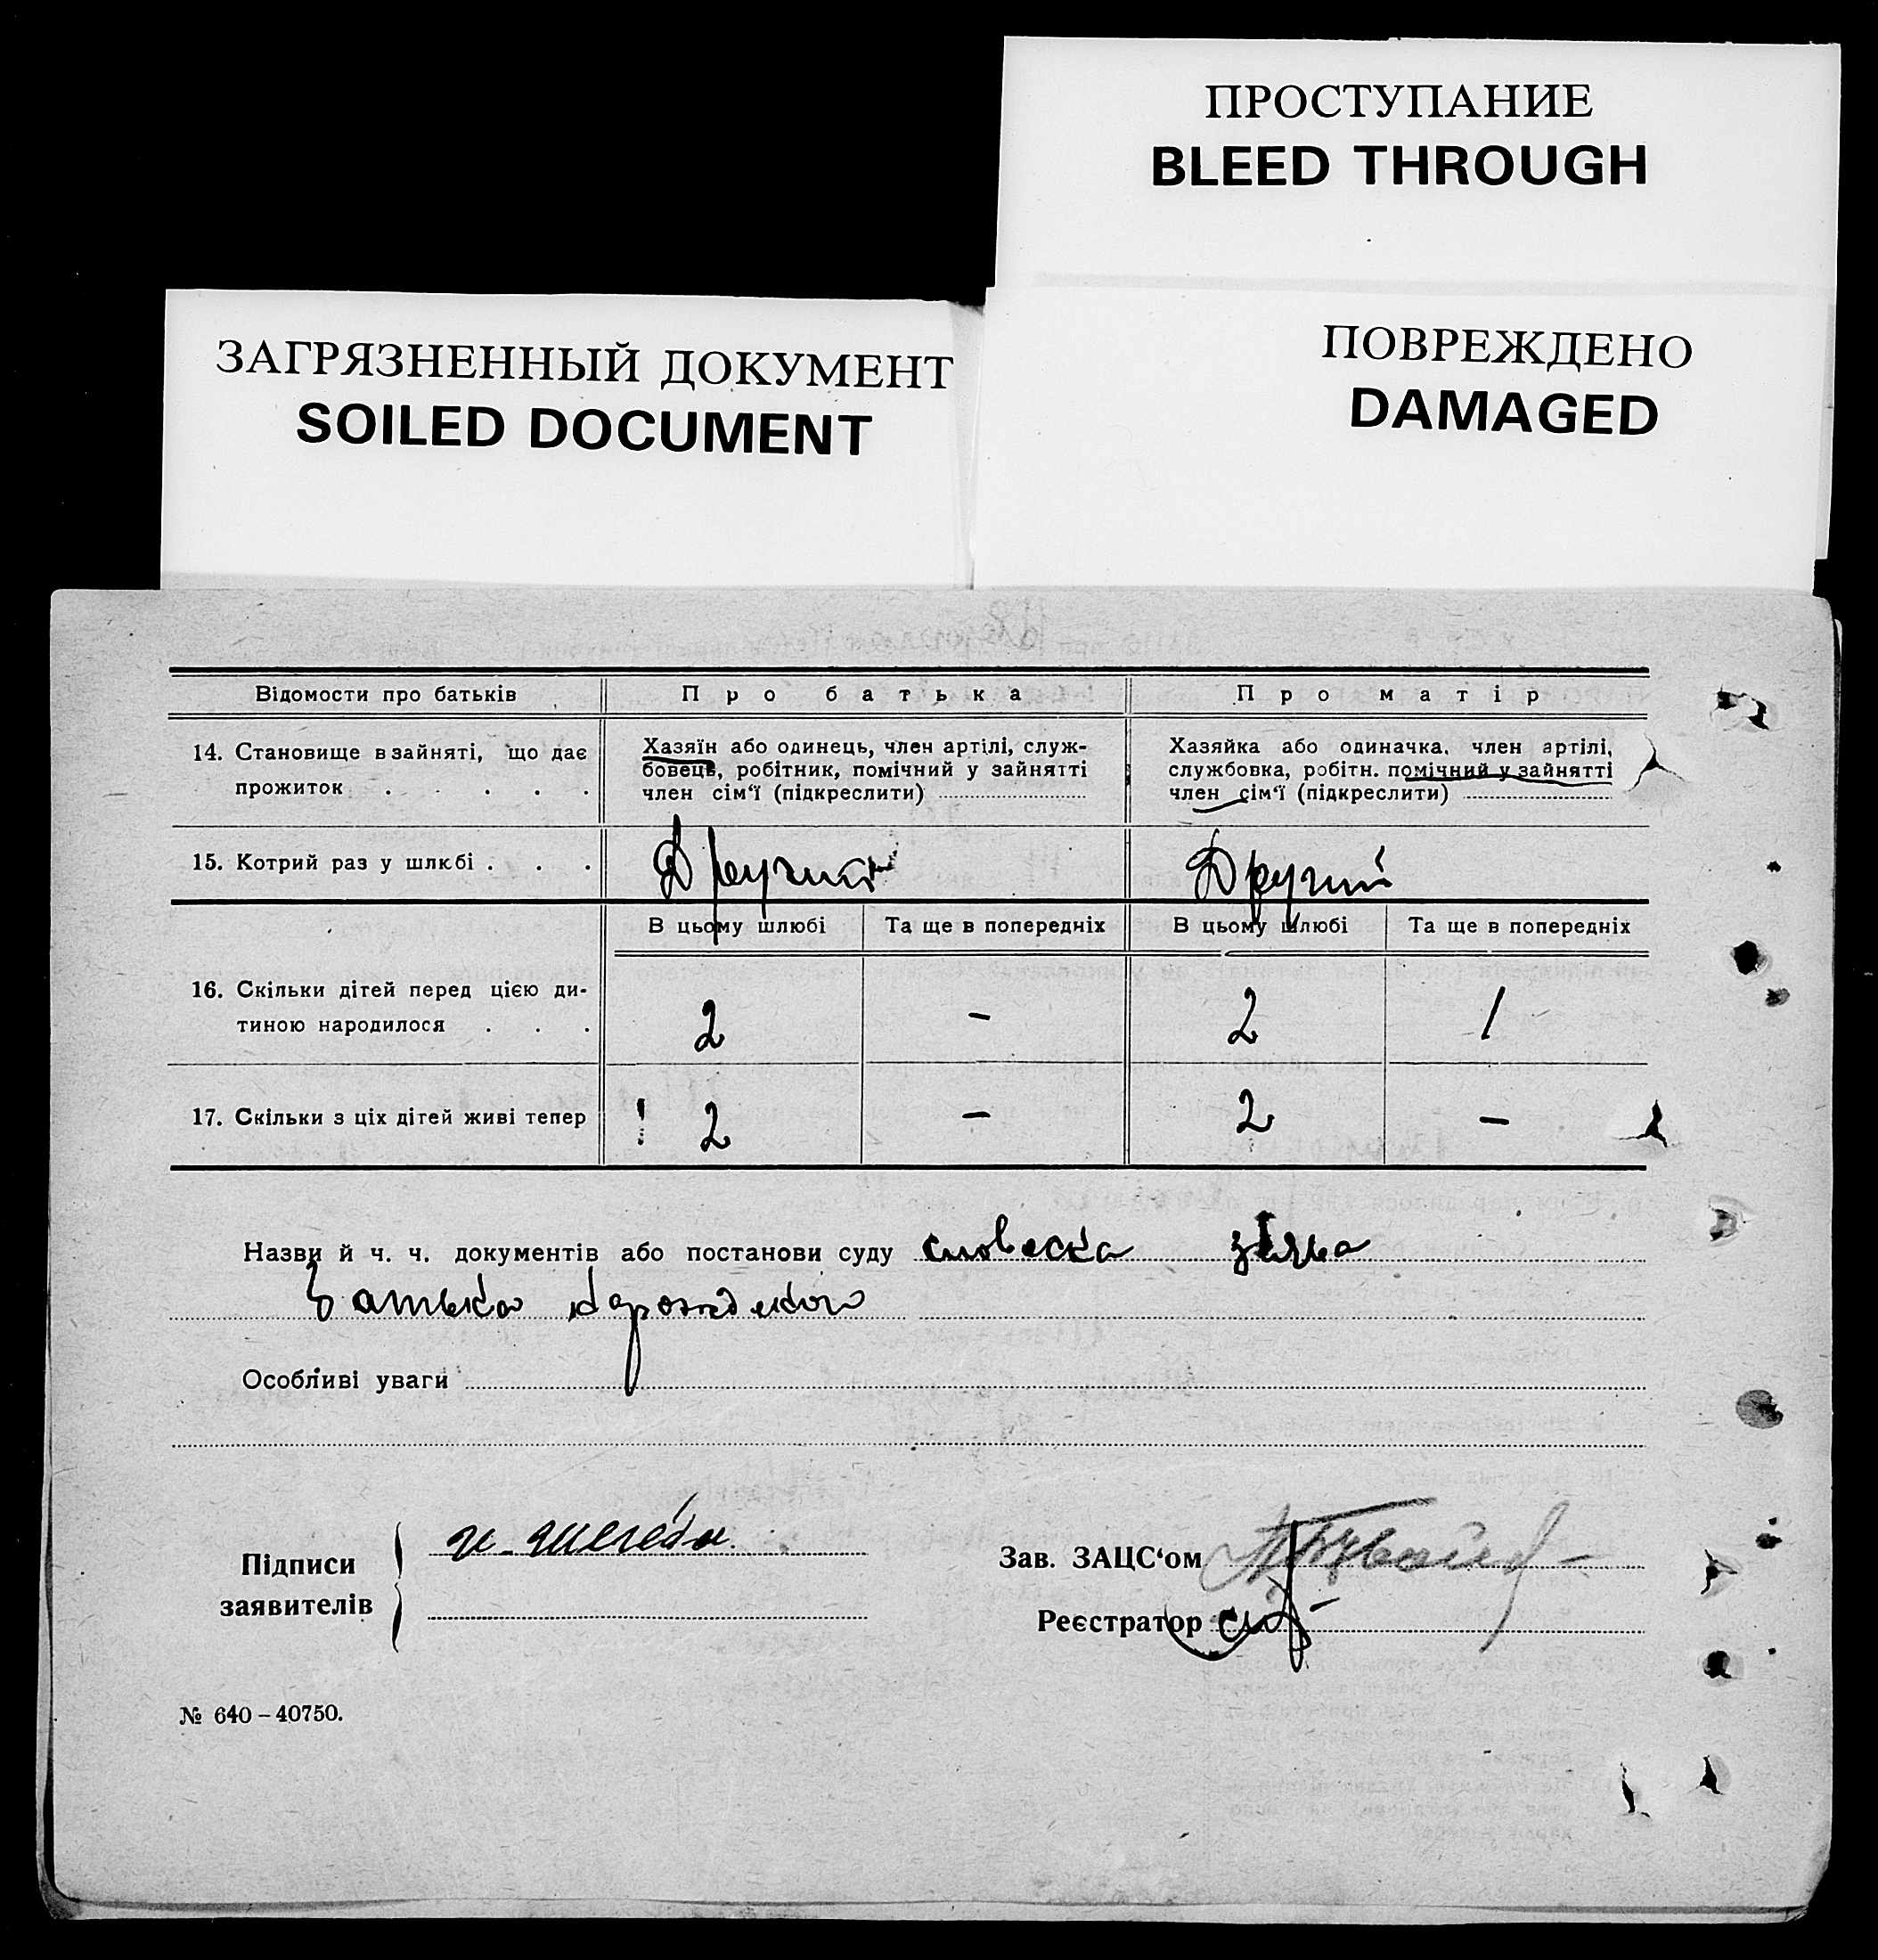 ПРОСТУПАНИЕ
BLEED THROUGH
ЗАГРЯЗНЕННЫЙ ДОКУМЕНТ
SOILED DOCUMENT
ПОВРЕЖДЕНО
DAMAGED
Відомости про батьків Про батька Про матір
14. Становище в зайняті, що дає
прожиток . . . . .
Хазяїн або одинець, член артілі, служ-
бовець, робітник, помічний у зайнятті
член сім‘ї (підкреслити)
Хазяйка або одиначка, член артілі,
службовка, робітн. помічний у зайнятті
член сім‘ї (підкреслити)
15. Котрий раз у шлюбі . . . Другий Другий
В цьому шлюбі Та ще в попередніх В цьому шлюбі Та ще в попередніх
16. Скільки дітей перед цією ди-
тиною народилося . . . 2 – 2 1
17. Скільки з ціх дітей живі тепер 2 – 2 –
Назви й ч. ч. документів або постанови суду словеска заява
батька
Особливі уваги
Підписи
заявителів
Зав. ЗАЦС‘ом
Реєстратор
№ 640 – 40750.